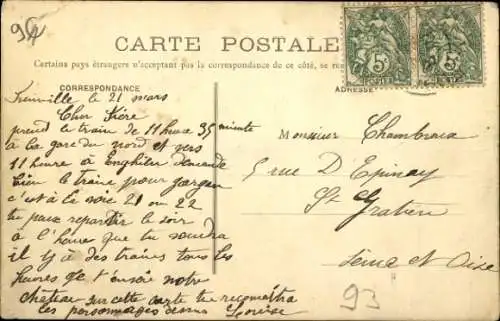 94
CARTE POSTALE
Certains pays étrangers n'acceptent pas la correspondance de ce côté, se
CORRESPONDANCE
ADRESSE
5c
5c
le 21 mars
Cher Frère
prend le train de 11 heure 35 minute
à la gare du nord et vers
11 heure à Enghien demande
bien le traine pour
c'est à le soie 21 ou 22
tu peux repartir le soir
à l'heure que tu voudra
il y à des traines tous les
heures je t'envoie notre
château sur cette carte tu reconnaitra
les personnages dessus Louise
Monsieur Chambroux
5 rue D'Epinay
St Gratien
Seine et Oise
93